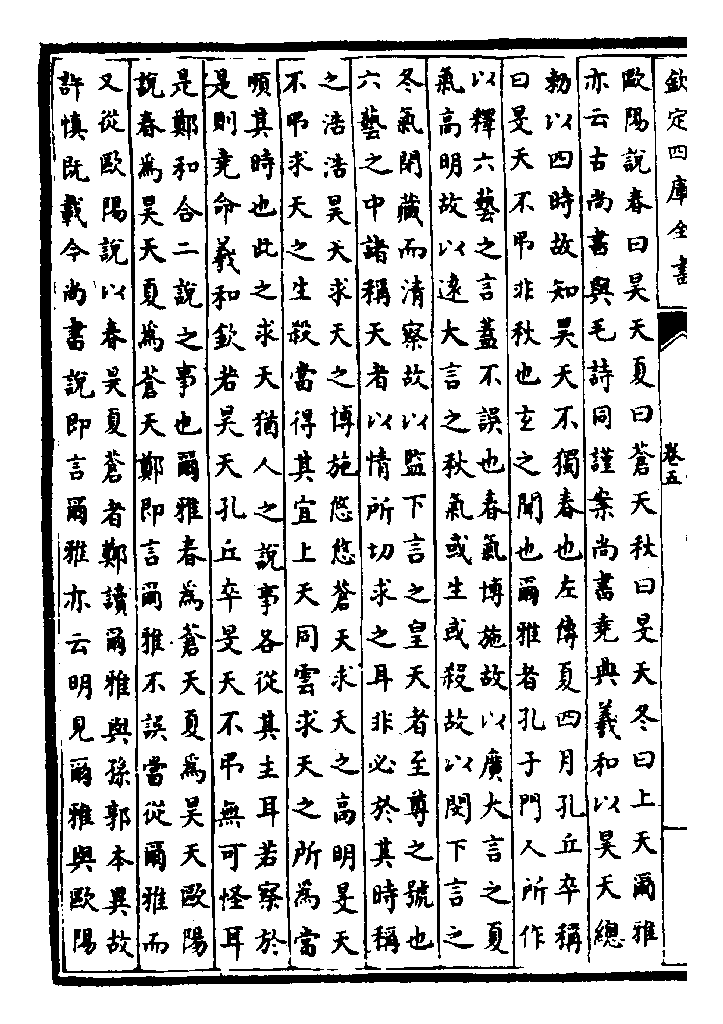 欽定四庫全書
卷五
歐陽說春曰昊天夏曰蒼天秋曰旻天冬曰上天爾雅
亦云古尚書與毛詩同謹案尚書堯典羲和以昊天總
勅以四時故知昊天不獨春也左傳夏四月孔丘卒稱
曰旻天不弔非秋也玄之聞也爾雅者孔子門人所作
以釋六藝之言蓋不誤也春氣博施故以廣大言之夏
氣高明故以遠大言之秋氣或生或殺故以閔下言之
冬氣閉藏而清察故以監下言之皇天者至尊之號也
六藝之中諸稱天者以情所切求之耳非必於其時稱
之浩浩昊天求天之博施悠悠蒼天求天之高明旻天
不弔求天之生殺當得其宜上天同雲求天之所為當
順其時也此之求天猶人之說事各從其主耳若察於
是則堯命羲和欽若昊天孔丘卒旻天不弔無可怪耳
是鄭和合二說之事也爾雅春為蒼天夏為昊天歐陽
說春為昊天夏為蒼天鄭即言爾雅不誤當從爾雅而
又從歐陽說以春昊夏蒼者鄭讀爾雅與孫郭本異故
許慎既載今尚書說即言爾雅亦云明見爾雅與歐陽